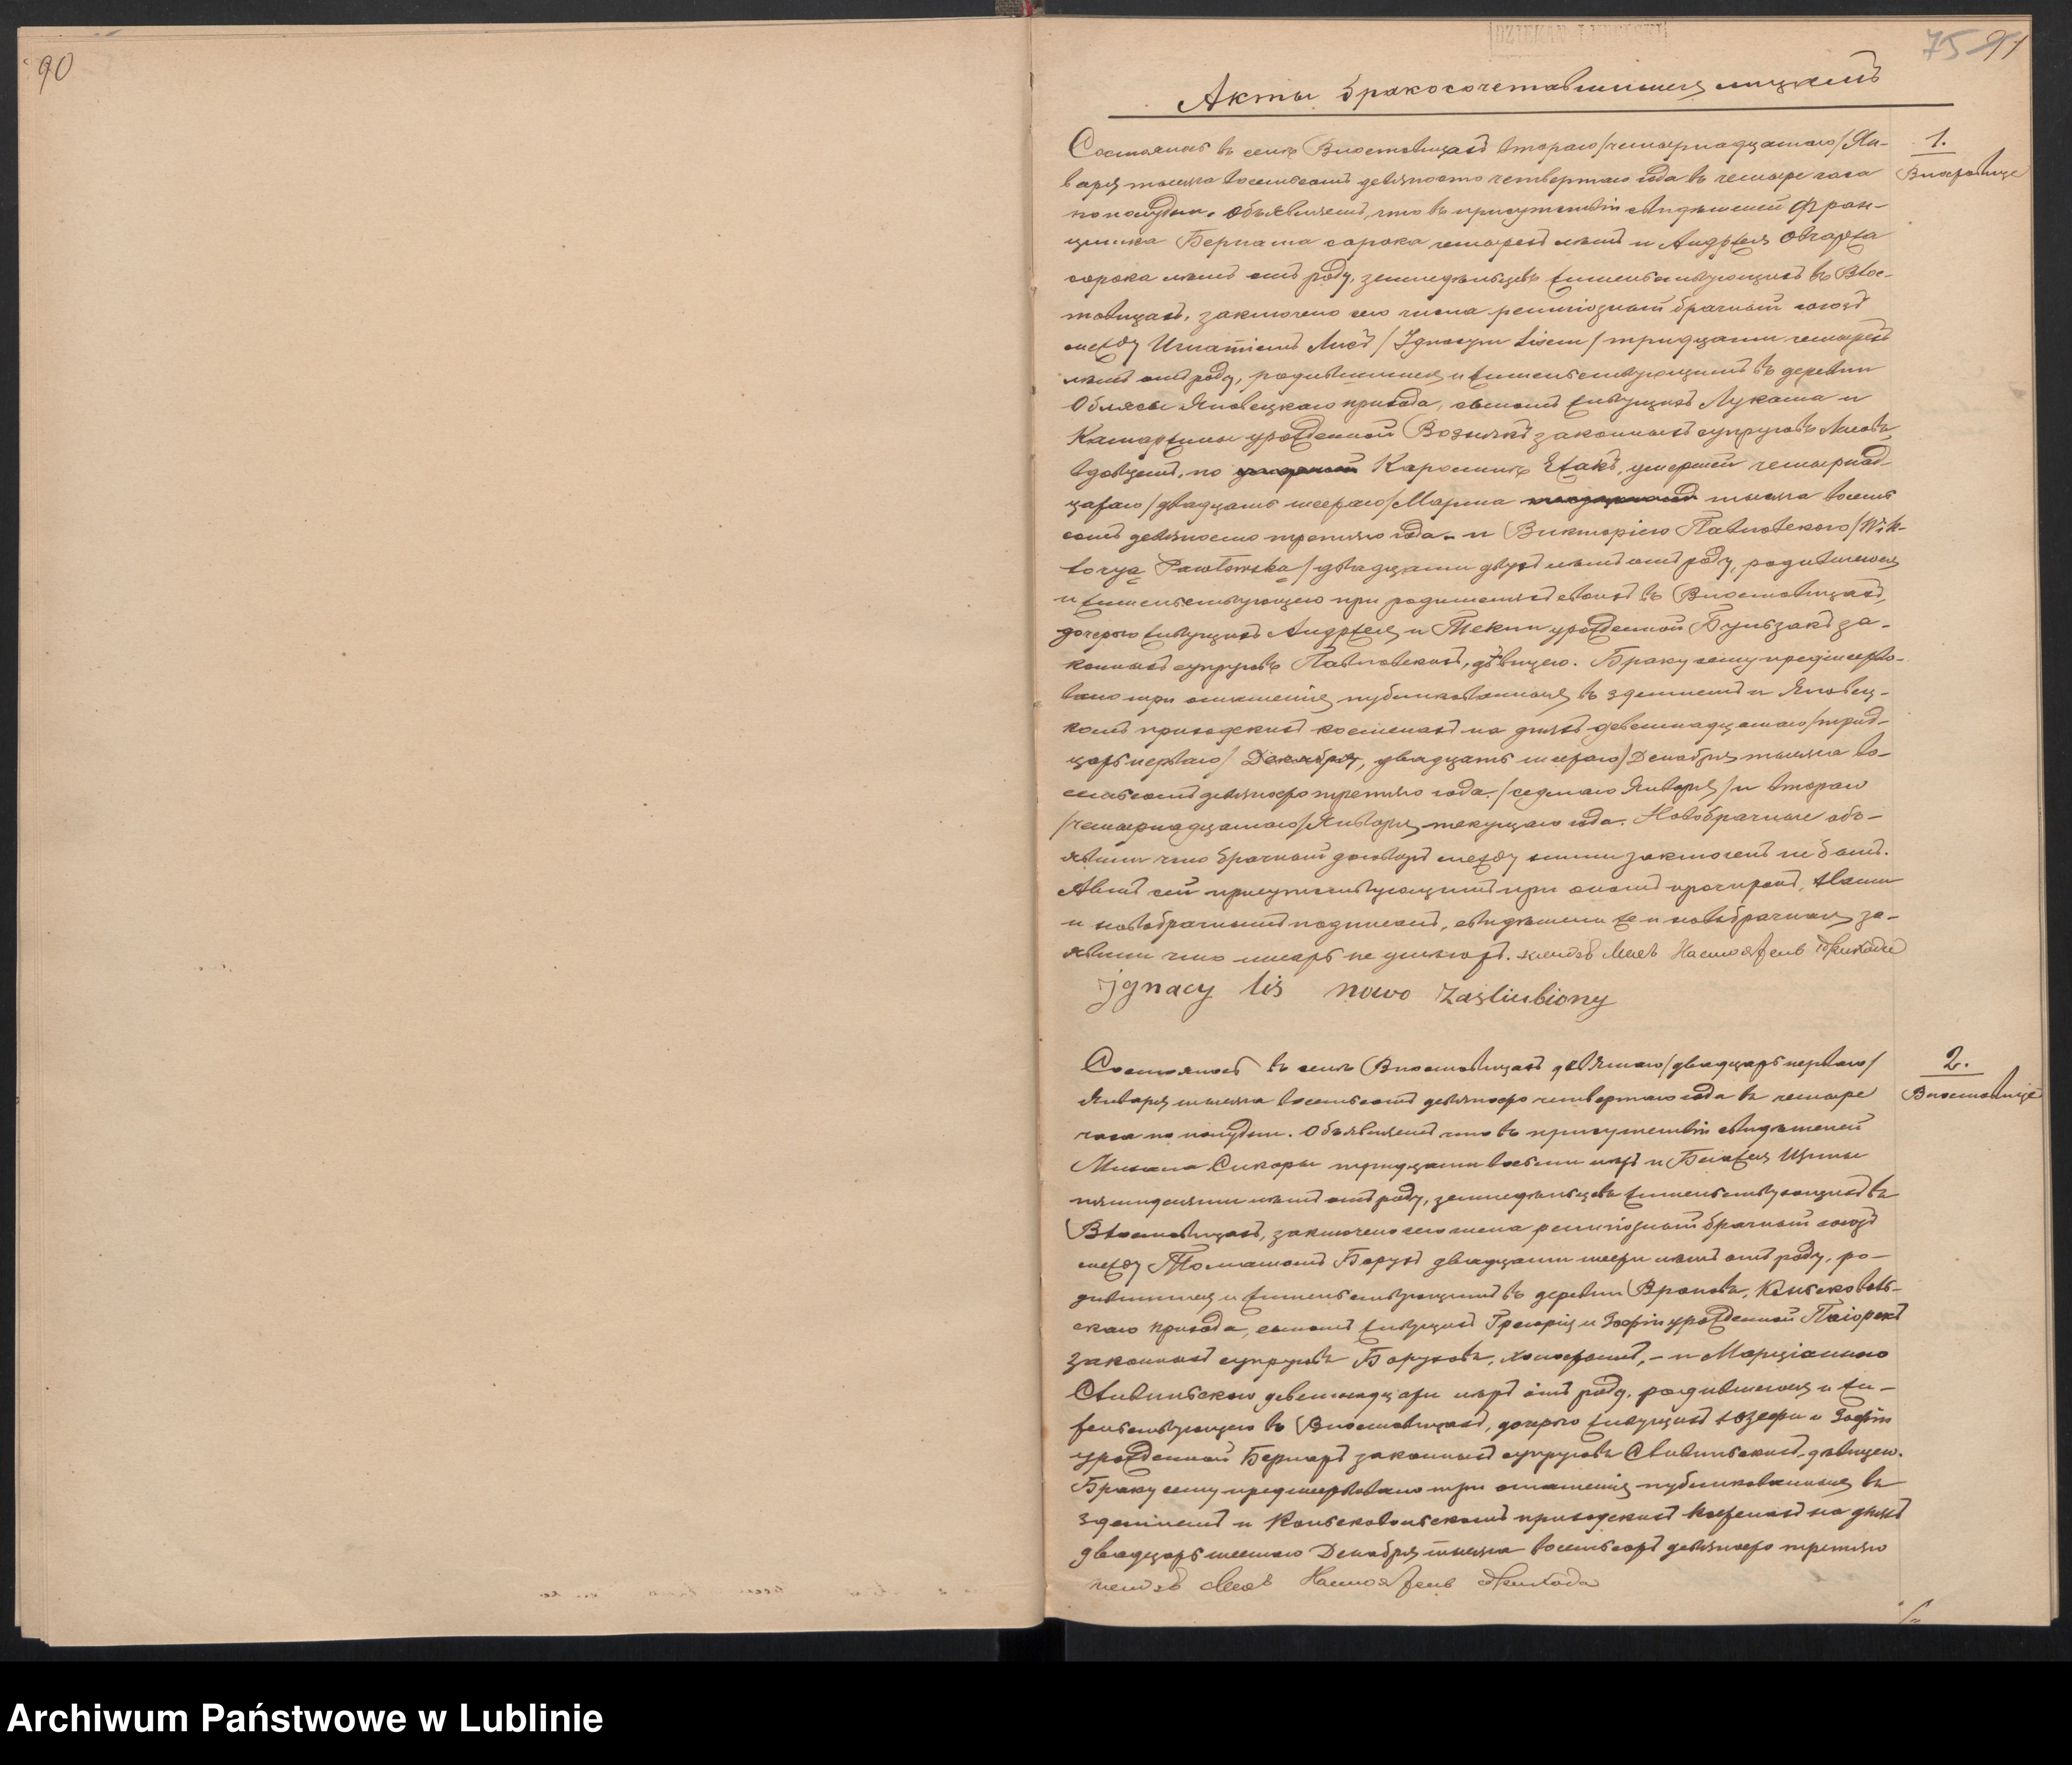 90
DZIEKAN LUBELSKI
75 91
Акты бракосочетавшихся лицъ
1.
Влостовице
Состоялось въ селѣ Влостовицахъ втораго /четырнадцатаго/ Ян-
варя тысяча восемьсотъ девяносто четвертаго года въ четыре часа
по полудни. Объявляемъ, что въ присутствіи свидѣтелей Фран-
цишка Берната сорока четырехъ лѣтъ и Андрея Овчаржа
сорока лѣтъ отъ роду, земледѣльцевъ жительствующихъ въ Влос-
товицахъ, заключено сего числа религіозный брачный союзъ
между Игнатіемъ Лисъ /Ignacym Lisem/ тридцати четырехъ
лѣтъ отъ роду, родившимся и жительствующимъ въ деревни
Облясы Яновецкаго прихода, сыномъ живущихъ Лукаша и
Катаржины урожденной Возьнякъ законныхъ супруговъ Лисовъ,
вдовцемъ, по Каролинѣ Жакъ, умершей четырнад-
цатаго /двадцать шестаго/ Марта тысяча восемь
сотъ девяносто третьяго года. и Викторіею Павловскою /Wik-
torya Pawłowska/ двадцати двухъ лѣтъ отъ роду, родившеюся
и жительствующею при родителяхъ своихъ въ Влостовицахъ,
дочерью живущихъ Андрея и Текли урожденной Бульзакъ за-
конныхъ супруговъ Павловскихъ, дѣвицею. Браку сему предшество-
вало три оглашенія публикованныя въ здешнемъ и Яновец-
комъ приходскихъ костелахъ на дняхъ девятнадцатаго /трид-
цать перваго/ Декабря, двадцать шестаго/ Декабря тысяча во-
семьсотъ девяносто третьяго года. /седмаго Января/ и втораго
/четырнадцатаго/ Января текущаго года. Новобрачные объ-
явили что брачный договоръ между ними заключенъ не былъ.
Актъ сей присутствующимъ при ономъ прочитанъ, Нами
и новобрачнымъ подписанъ, свидѣтели же и новобрачная за-
явили что писать не умѣютъ. Настоятель Прихода
Jgnacy lis nowo zasliubiony
2.
Влостовице
Состоялось въ селѣ Влостовицахъ девятаго /двадцать перваго/
Января тысяча восемьсотъ девяносто четвертаго года въ четыре
часа по полудни. Объявляемъ что въ присутствіи свидѣтелей
Михала Сикоры тридцати восьми лѣтъ и Блажея Щипы
пятидесяти лѣтъ отъ роду, земледѣльцевъ жительствующихъ въ
Влостовицахъ, заключено сего числа религіозный брачный союзъ
между Томашомъ Борухъ двадцати шести лѣтъ отъ роду, ро-
дившимся и жительствующимъ въ деревни Вроновъ, Коньсковоль-
скаго прихода, сыномъ живущихъ Григорія и Зофіи урожденной Паіорекъ
законныхъ супруговъ Боруховъ, холостымъ, - и Марціанною
Сливиньскою девятнадцати лѣтъ отъ роду, родившеюся и жи-
тельствующею въ Влостовицахъ, дочерью живущихъ Юзефа и Зофіи
урожденной Бернартъ законныхъ супруговъ Сливиньскихъ дѣвицею.
Браку сему предшествовало три оглашенія публикованныя въ
здешнемъ и Коньсковольскомъ приходскихъ костелахъ на дняхъ
двадцать шестаго Декабря тысяча восемьсотъ девяносто третьяго
Настоятель Прихода
Archiwum Państwowe w Lublinie